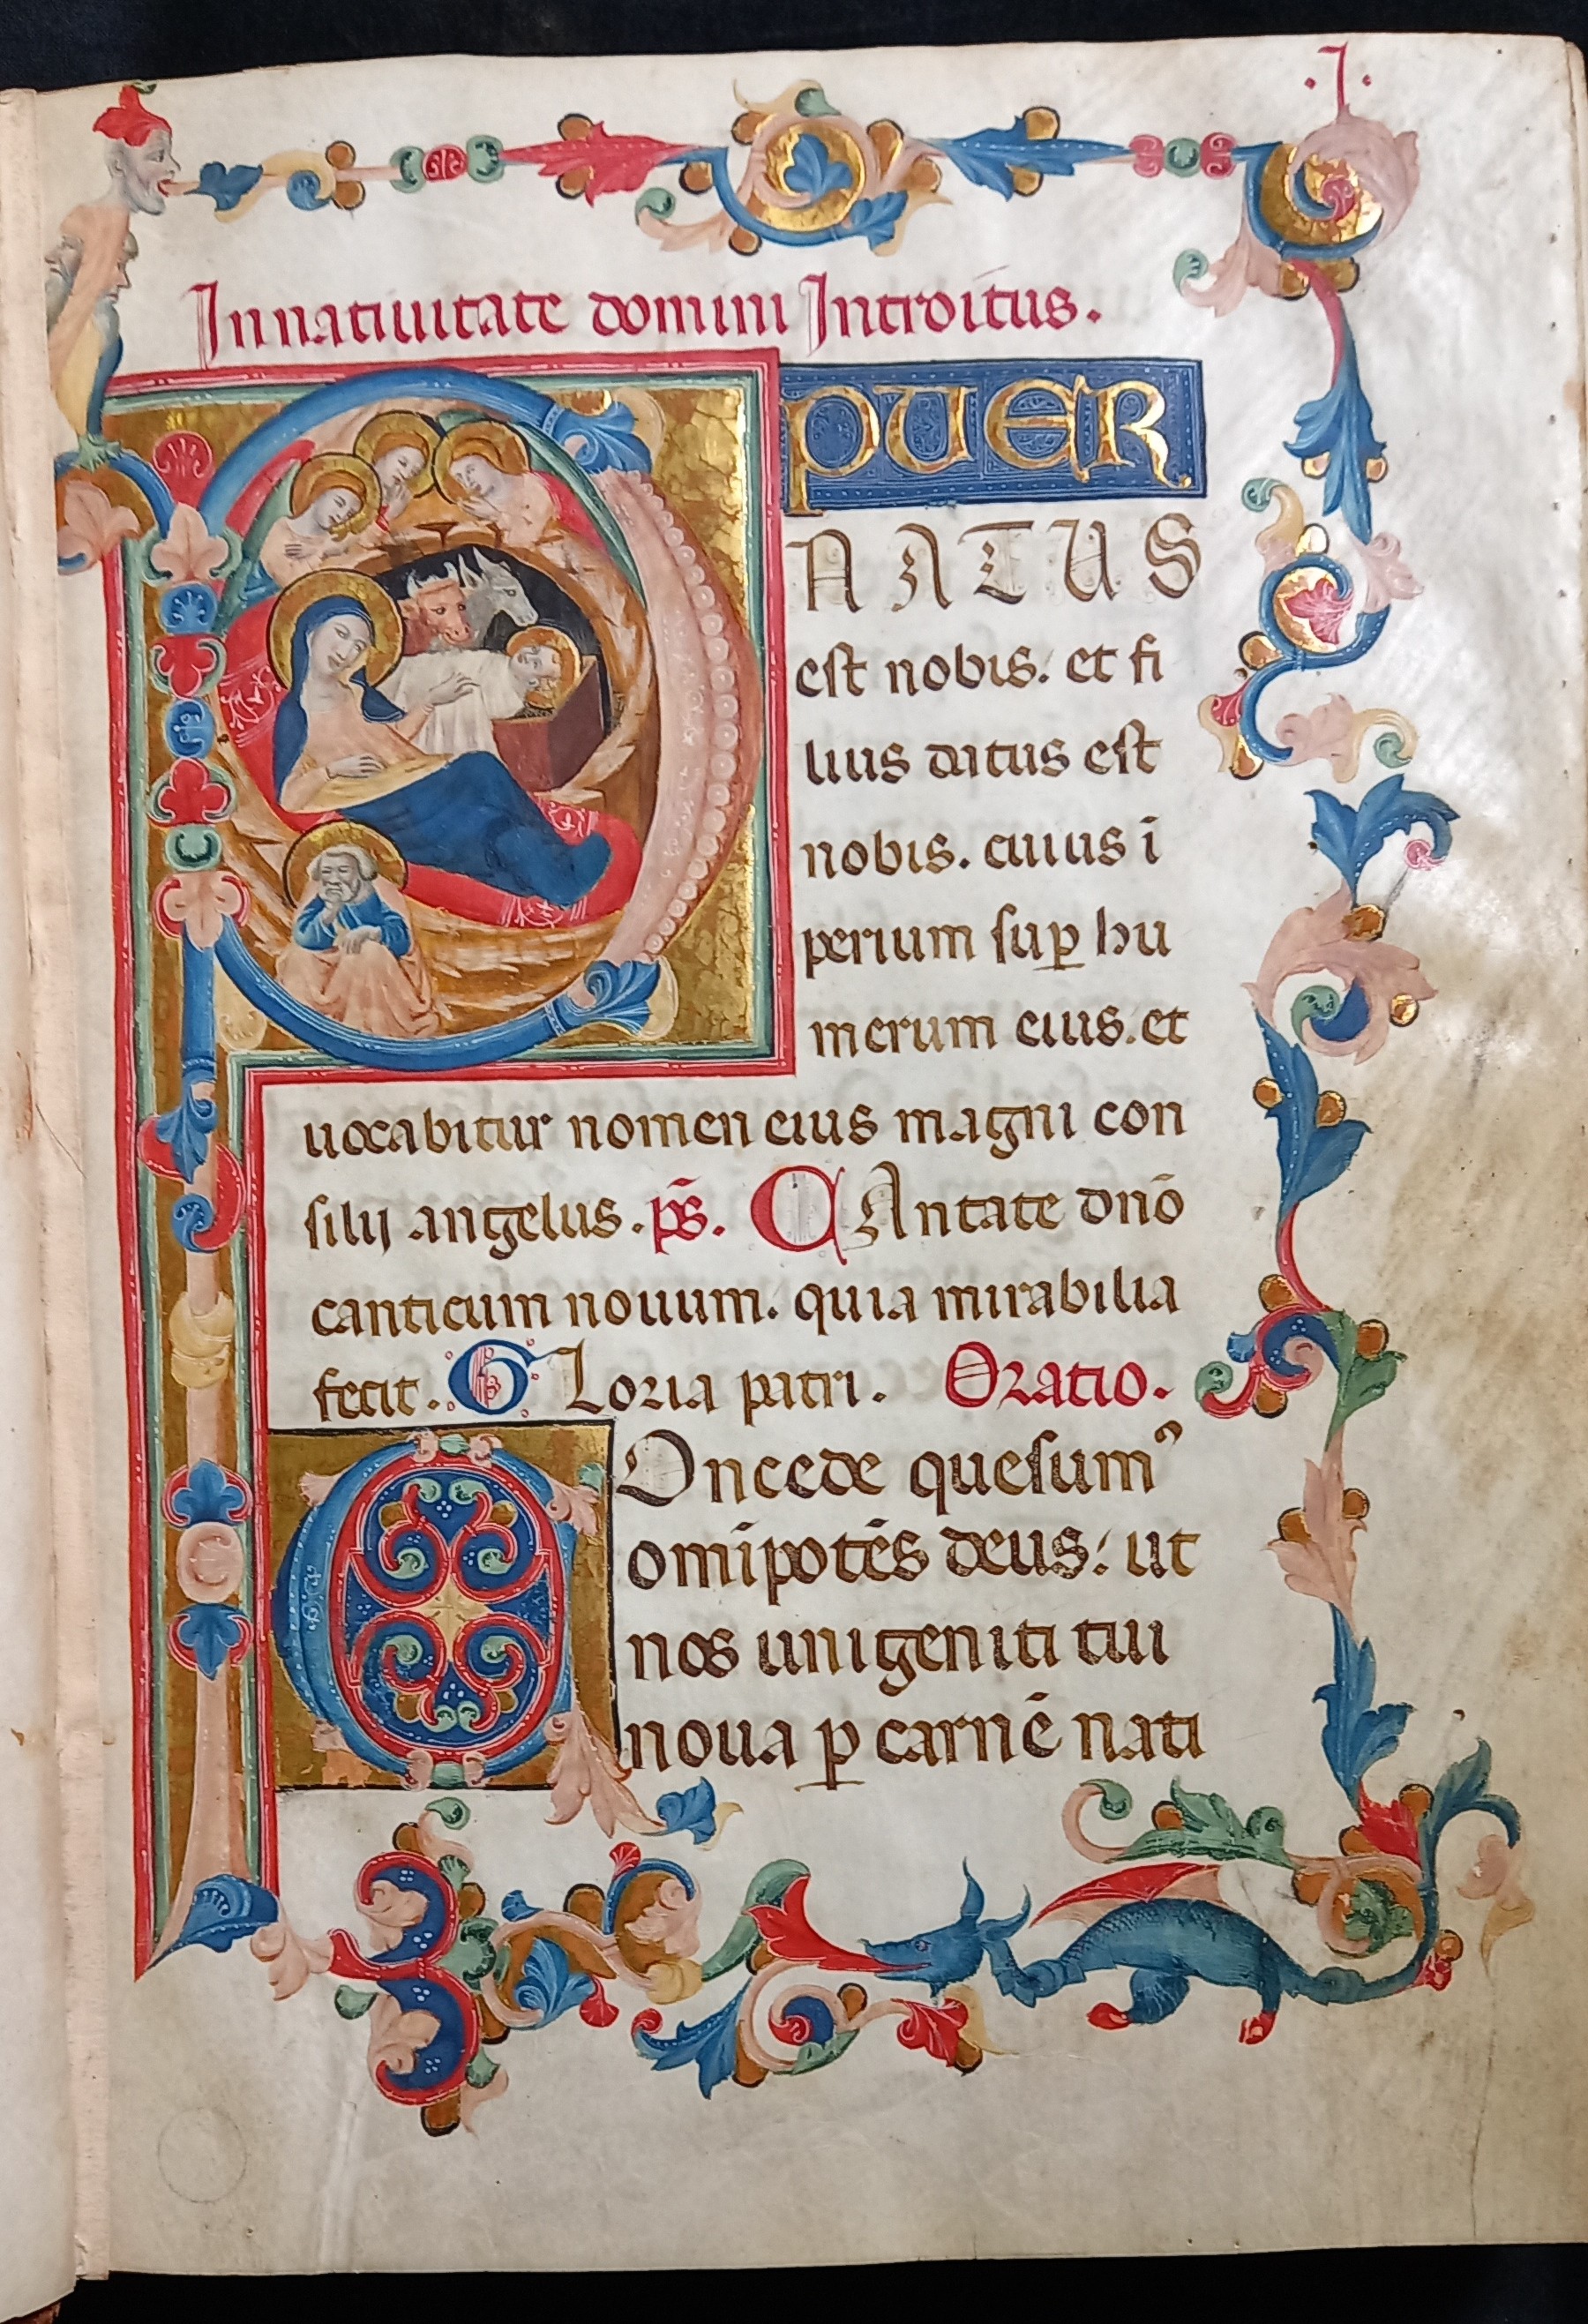 .I.
In natiuitate domini Introitus.
PUER
NATUS
est nobis. et fi
lius datus est
nobis. cuius ī
perium sup̲ hu
merum eius. et
uocabitur nomen eius magni con
silij angelus. p̄s. CAntate dn̄o
canticum nouum. quia mirabilia
fecit. GLoria patri. Oratio.
COncede quesumꝰ
om̄ipotēs deus: ut
nos unigeniti tui
noua ꝑ carnē nati